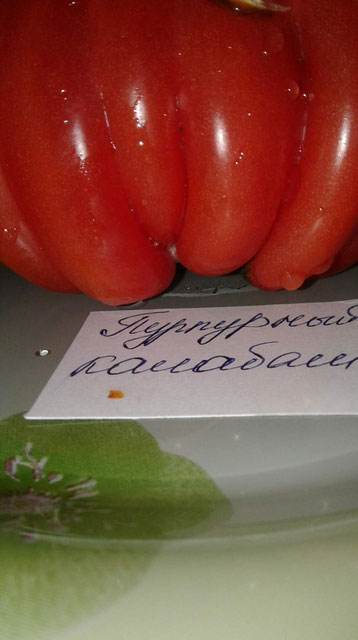 Пурпурный
калабаш